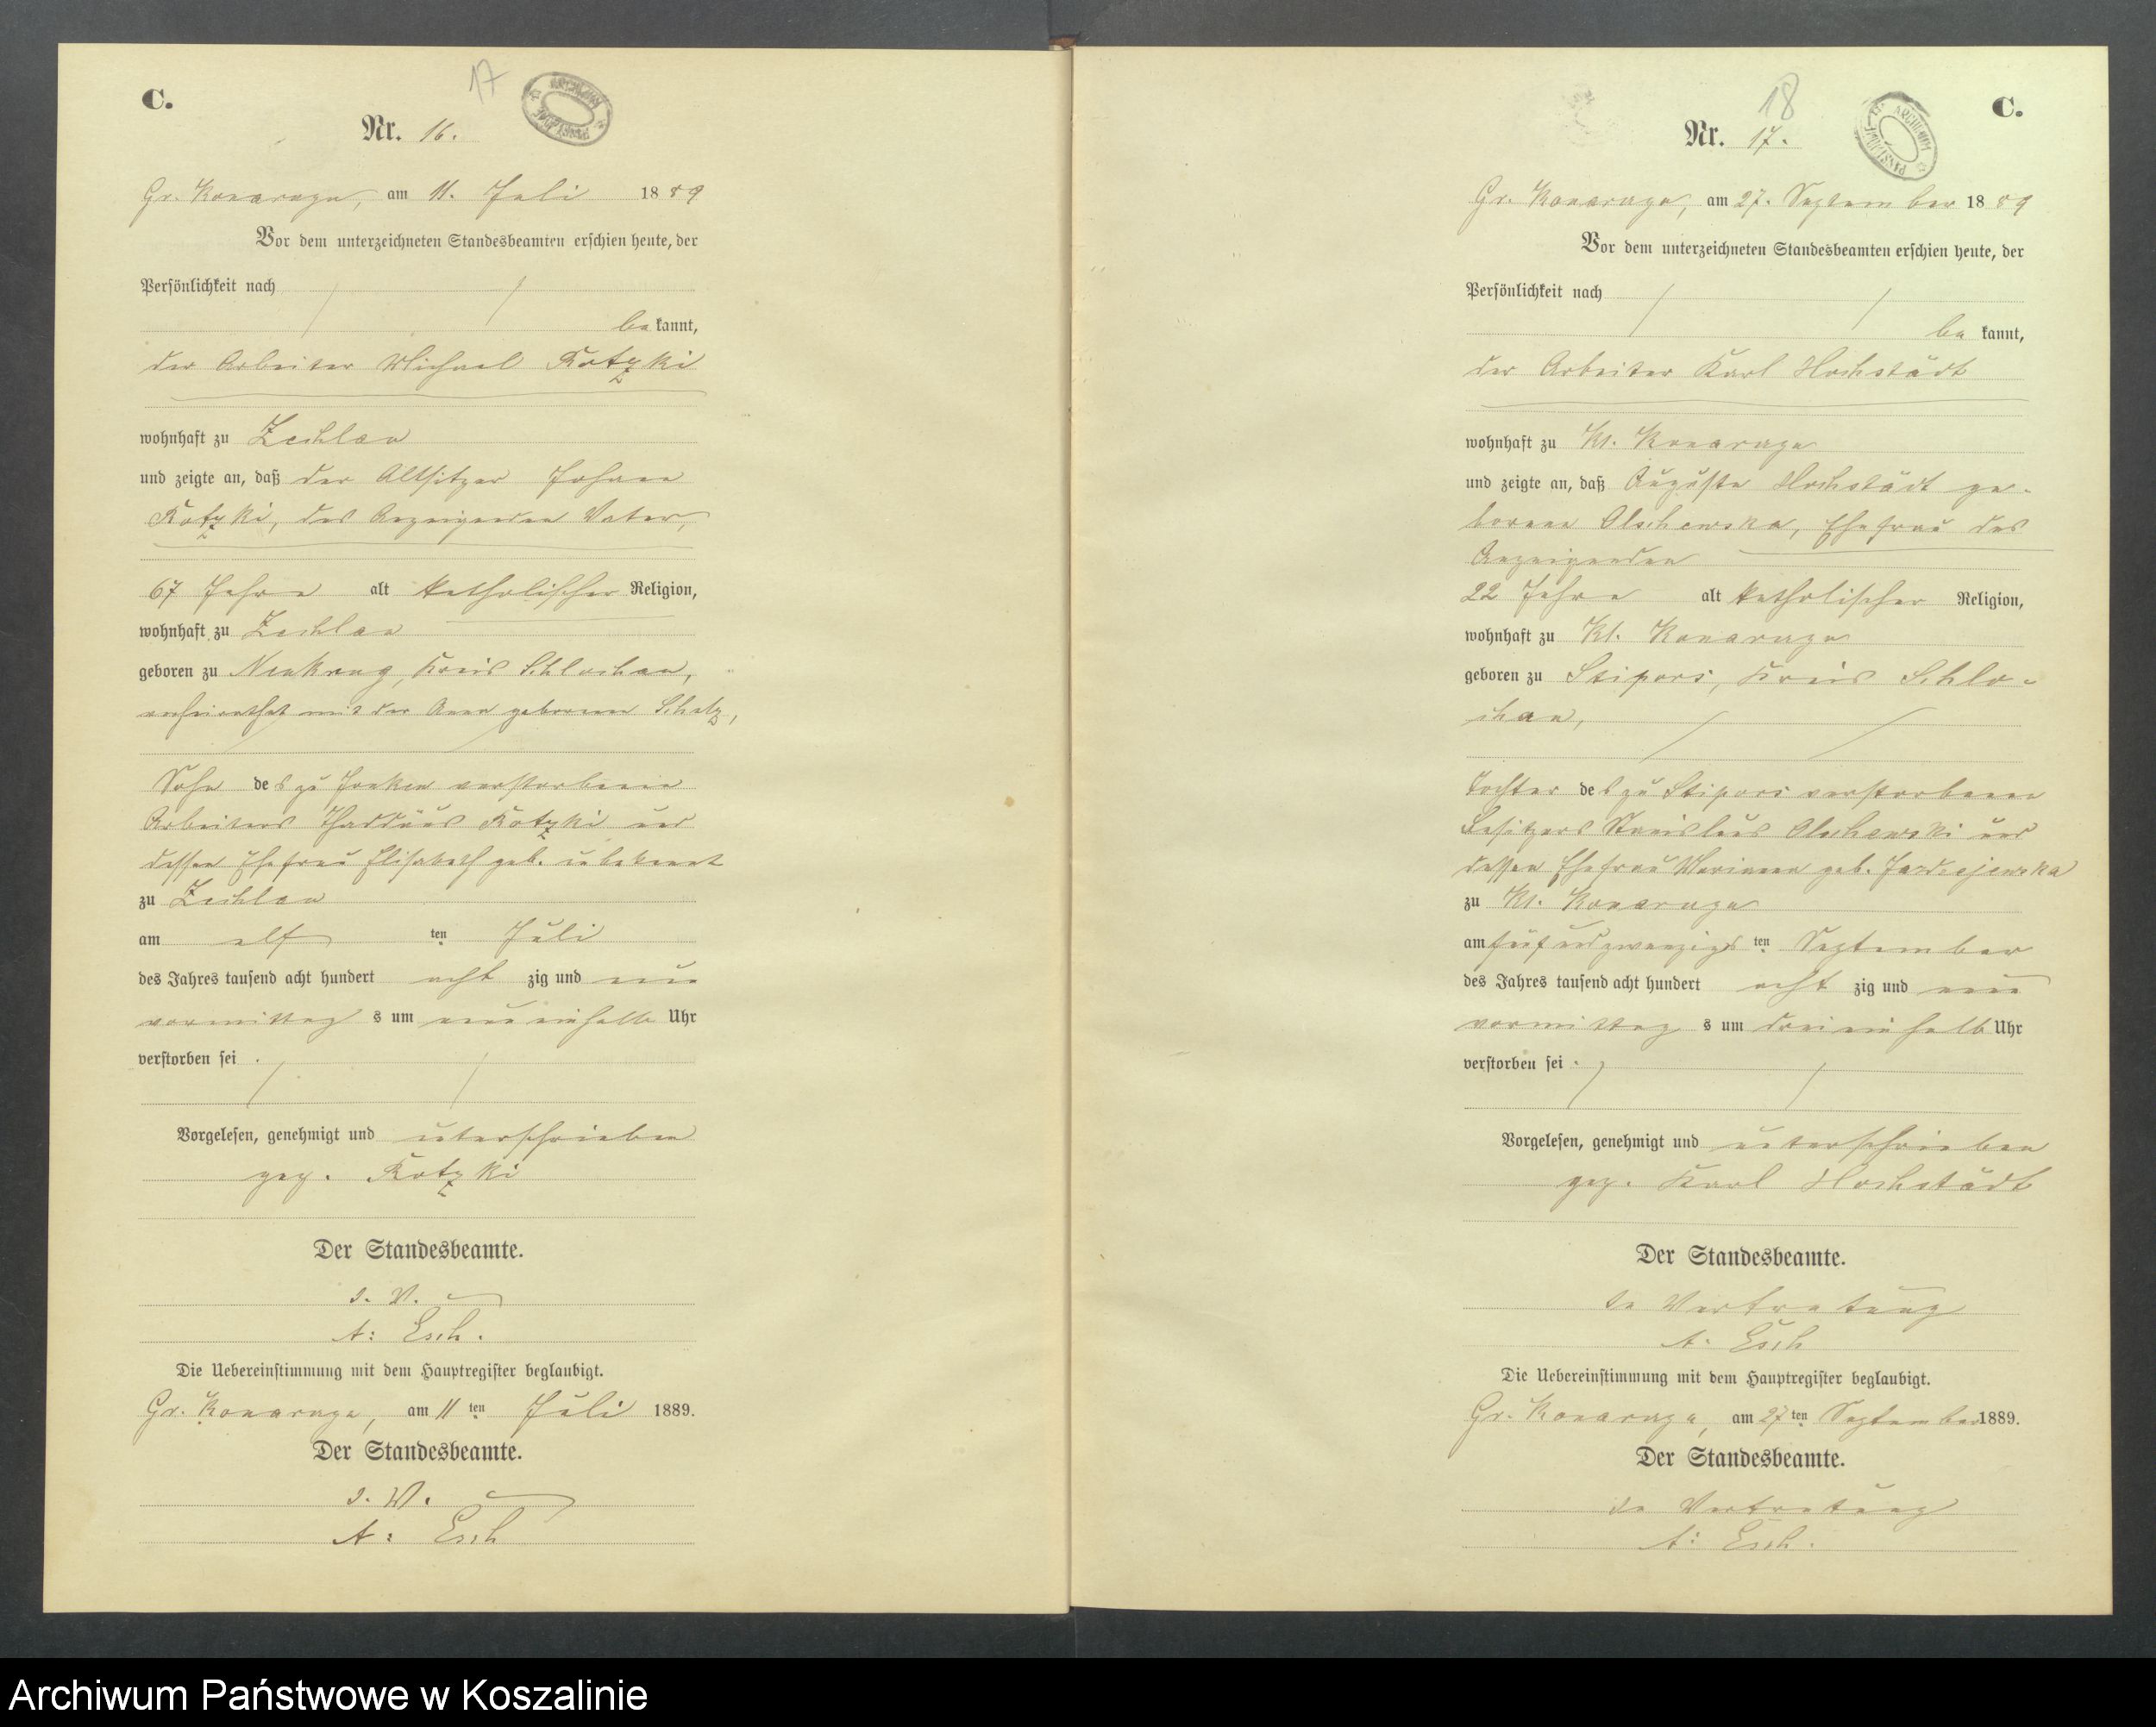 17
C.
Nr. 16.
Gr. Konarczyn, am 11. Juli 1889
Vor dem unterzeichneten Standesbeamten erschien heute, der
Persönlichkeit nach
be kannt,
der Arbeiter Michael Kotzki
wohnhaft zu Zechlau
und zeigte an, daß der Altsitzer Johann
Kotzki, des Anzeigenden Vater,
67 Jahre alt katholischer Religion,
wohnhaft zu Zechlau
geboren zu Neukrug, Kreis Schlochau,
verheirathet mit der Anna geborenen
Sohn des zu verstorbenen
Arbeiters Thaddäus Kotzki und
dessen Ehefrau Elisabeth geb. unbekannt
zu Zechlau
am elf ten Juli
des Jahres tausend acht hundert acht zig und neun
vormittag s um neun einhalb Uhr
verstorben sei.
Vorgelesen, genehmigt und unterschrieben
gez. Kotzki
Der Standesbeamte.
I. V.
A: Esch.
Die Uebereinstimmung mit dem Hauptregister beglaubigt.
Gr. Konarczyn, am 11 ten Juli 1889.
Der Standesbeamte.
I. V.
A: Esch
18
C.
Nr. 17.
Gr. Konarczyn, am 27. September 1889
Vor dem unterzeichneten Standesbeamten erschien heute, der
Persönlichkeit nach
be kannt,
der Arbeiter Karl Hochstädt
wohnhaft zu Kl. Konarczyn
und zeigte an, daß Auguste Hochstädt ge-
borene Olschewska, Ehefrau des
Anzeigenden
22 Jahre alt katholischer Religion,
wohnhaft zu Kl. Konarczyn
geboren zu Stipors, Kreis Schlo-
chau,
Tochter des zu Stipors verstorbenen
Besitzers Stanislaus Olschewski und
dessen Ehefrau Marianna geb.
zu Kl. Konarczyn
am fünf und zwanzigs ten September
des Jahres tausend acht hundert acht zig und neun
vormittag s um drei einhalb Uhr
verstorben sei.
Vorgelesen, genehmigt und unterschrieben
gez. Karl Hochstädt
Der Standesbeamte.
In Vertretung
A: Esch
Die Uebereinstimmung mit dem Hauptregister beglaubigt.
Gr. Konarczyn, am 27 ten September 1889.
Der Standesbeamte.
In Vertretung
A: Esch.
Archiwum Państwowe w Koszalinie